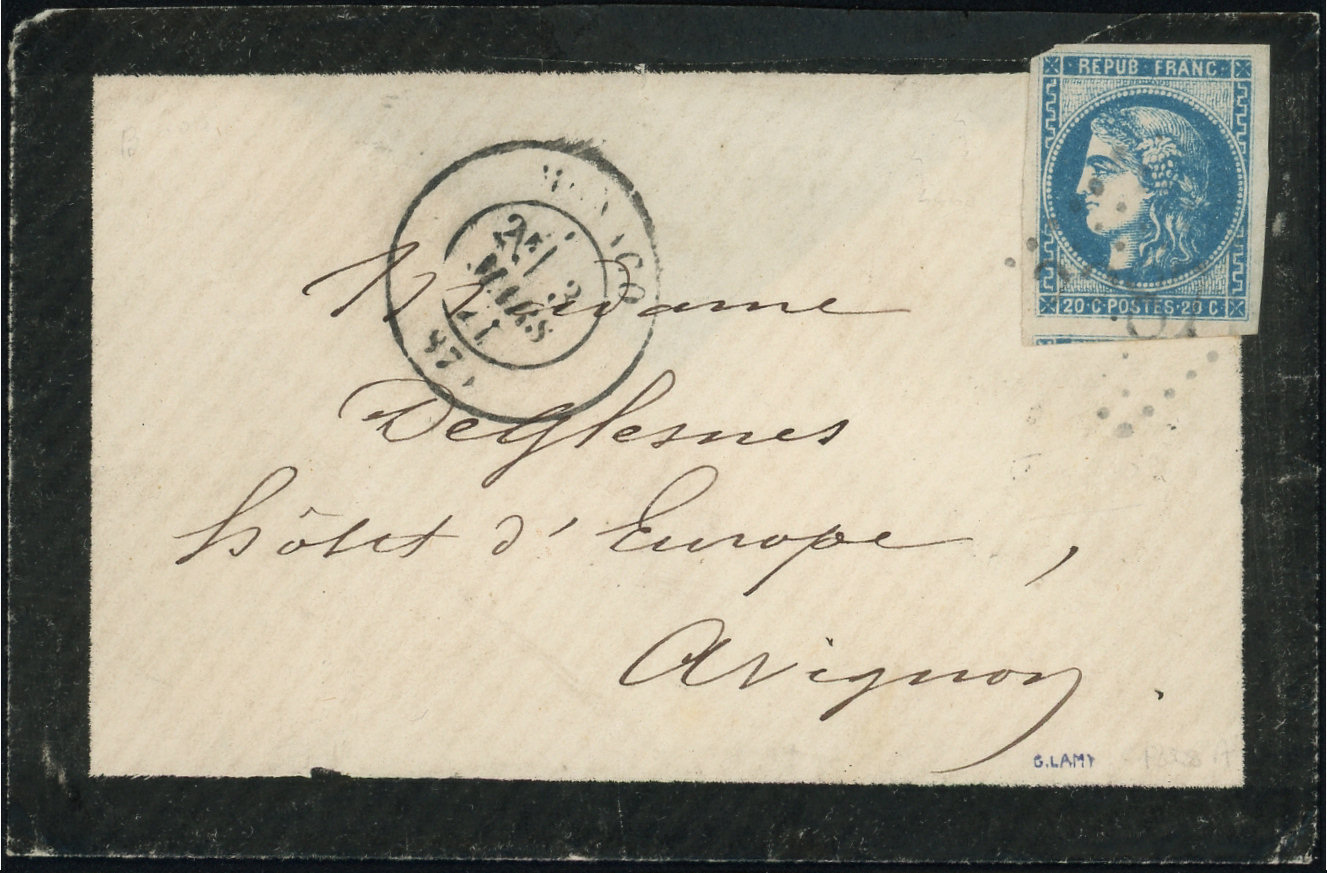 REPUB FRANC
20 C POSTES 20 C
MONACO
2E/
3
MARS
71
Madame
Deglesnes
hôtel d'Europe,
Avignon.
G.LAMY